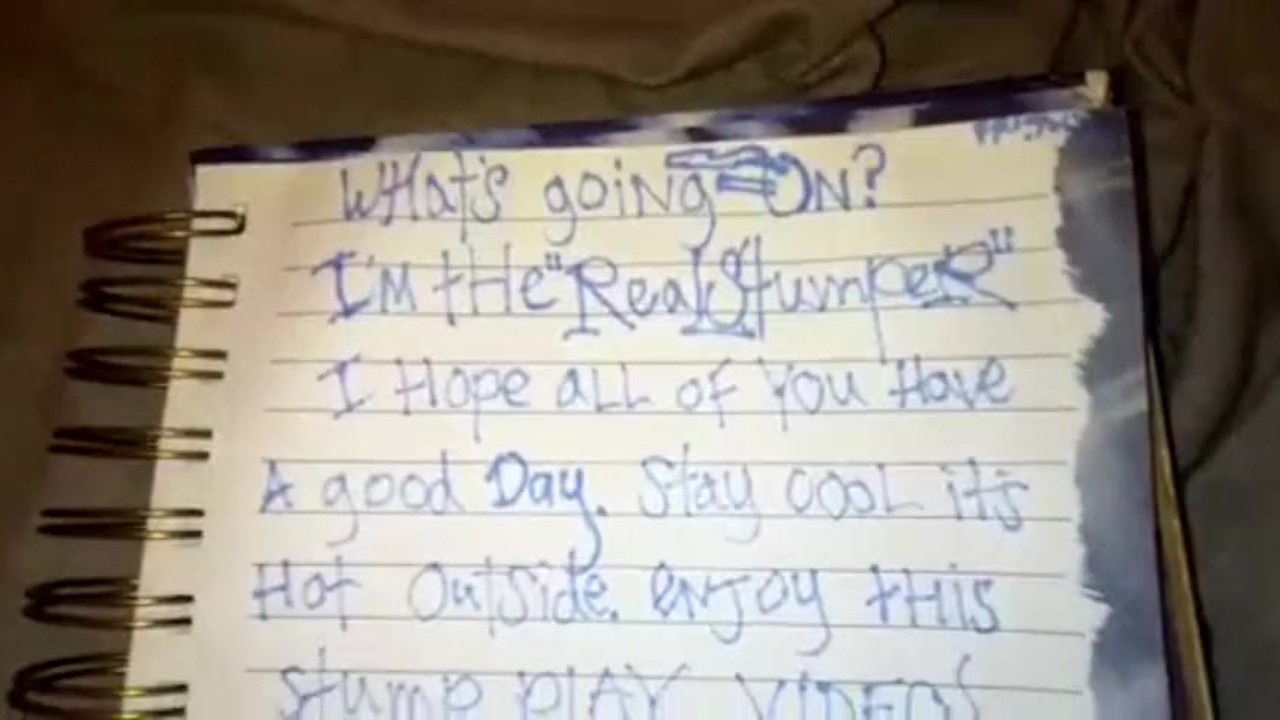 WHat's goiNg ON?
I'M tHe "Real StumpeR"
I Hope aLL of You Have
A good Day. Stay cooL it's
Hot OutSide. eNJoy tHis
Stump PlAY VIDEOS